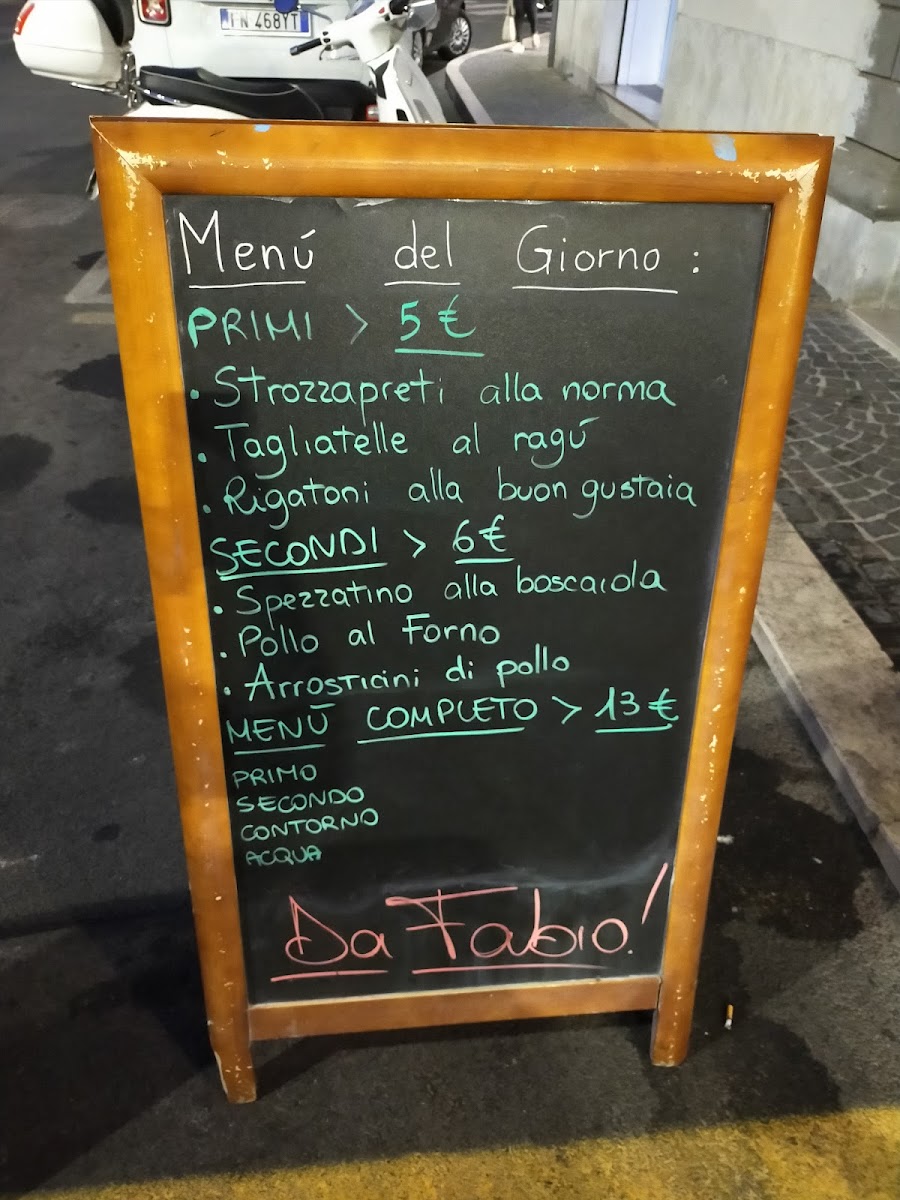 FN 468YT
Menú del Giorno :
PRIMI > 5 €
• Strozzapreti alla norma
• Tagliatelle al ragú
• Rigatoni alla buon gustaia
SECONDI > 6 €
• Spezzatino alla boscaiola
• Pollo al Forno
• Arrosticini di pollo
MENÙ COMPLETO > 13 €
PRIMO
SECONDO
CONTORNO
ACQUA
Da Fabio!